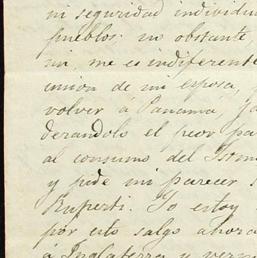 mi seguridad individu
pueblos: no obstante
un, me es indiferente
union de mi esposa,
volver á Panama,
derandolo el peor pa
al consumo del Ysmo
y pide mi parecer
Ruperti. Yo estoy
por esto salgo ahora
á Inglaterra y